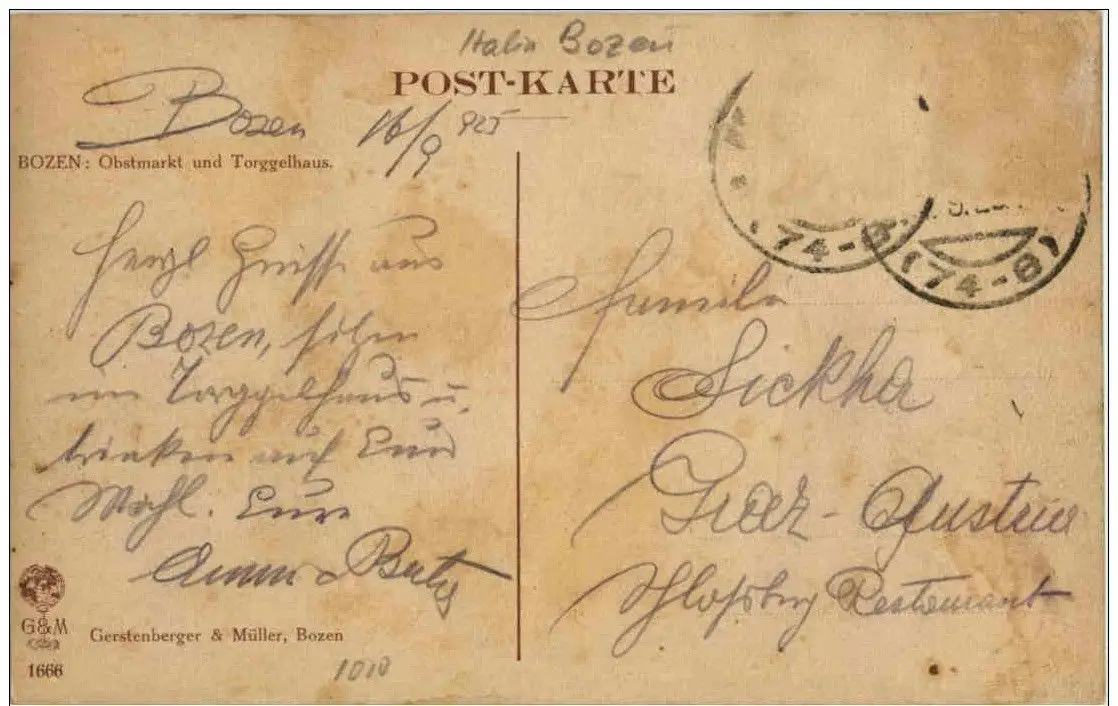 Italien Bozen
POST-KARTE
Bozen 16/9 925
BOZEN: Obstmarkt und Torggelhaus.
Herzl Grüsse aus
Bozen, sitzen
im Torggelhaus u.
trinken auf Euer
Wohl. Eure
Anna Berty
G&M
Gerstenberger & Müller, Bozen
1666
1010
(74-8)
(74-8)
Familie
Sickha
Graz - Austria
Schlossberg Restaurant